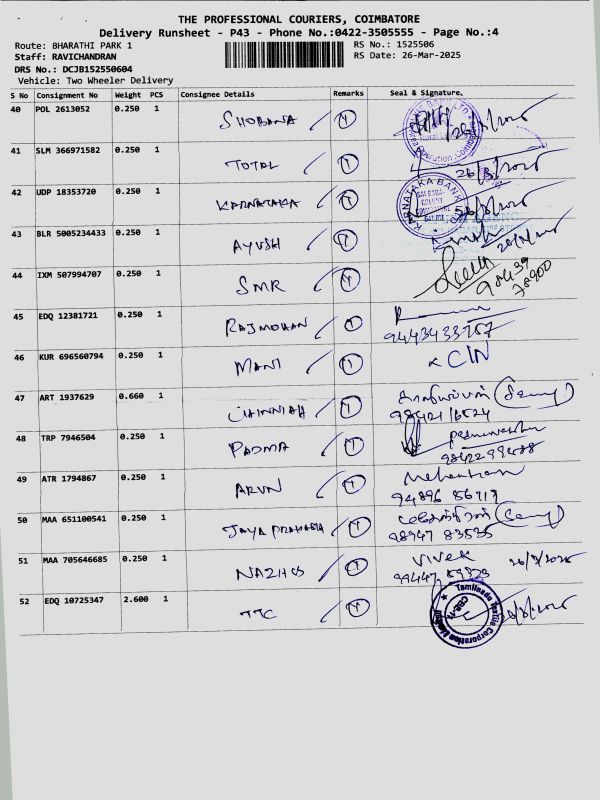 THE PROFESSIONAL COURIERS, COIMBATORE
Delivery Runsheet - P43 - Phone No.:0422-3505555 - Page No.:4
Route: BHARATHI PARK 1 RS No.: 1525506
Staff: RAVICHANDRAN RS Date: 26-Mar-2025
DRS No.: DCJB152550604
Vehicle: Two Wheeler Delivery
S No Consignment No Weight PCS Consignee Details Remarks Seal & Signature.
40 POL 2613052 0.250 1 SHOBANA
41 SLM 366971582 0.250 1 TOTAL 26/3/2025
42 UDP 18353720 0.250 1 KARNATAKA KARNATAKA BANK SAI BABA COLONY 26/3/2025
43 BLR 5005234433 0.250 1 AYUSH
44 IXM 507994707 0.250 1 SMR 98439 78900
45 EDQ 12381721 0.250 1 RAJMOHAN 9443433757
46 KUR 696560794 0.250 1 MANI CIN
47 ART 1937629 0.660 1 CHINNIAH 98421 16524
48 TRP 7946504 0.250 1 PADMA
49 ATR 1794867 0.250 1 ARUN 94896 86717
50 MAA 651100541 0.250 1 JAYA PRAKASH 98947 83535
51 MAA 705646685 0.250 1 Vivek 26/3/2025
52 EDQ 10725347 2.600 1 TTC Tamilnadu Textile Corporation 26/3/2025